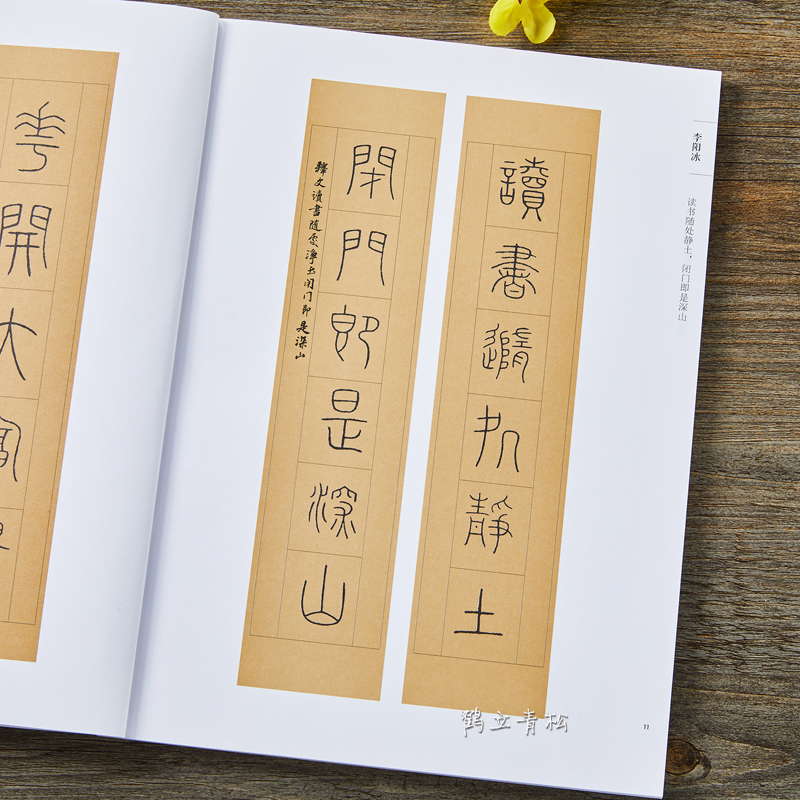 李阳冰
读书随处静土，闭门即是深山
讀書隨処靜土
閉門即是深山
释文读書随處淨土闭门即是深山
華開大
鹤立青松
11